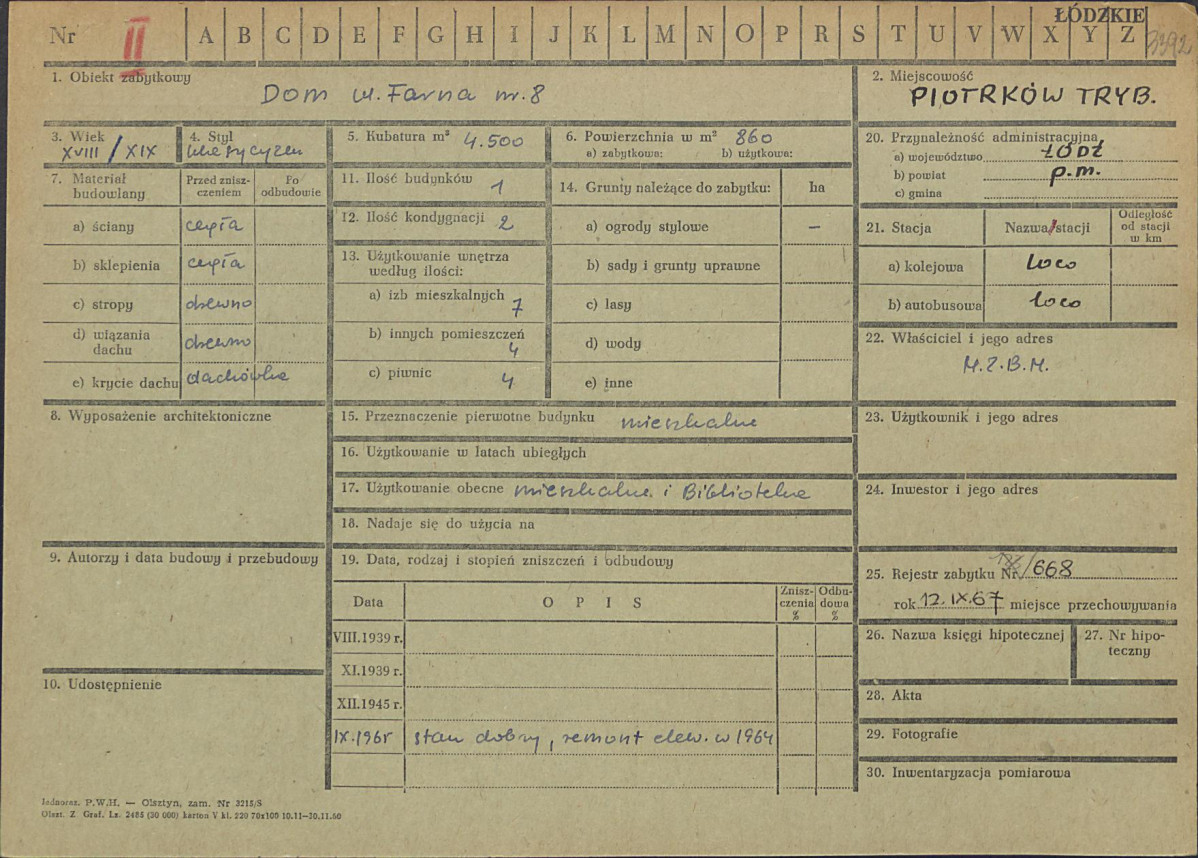 ŁÓDZKIE
Nr II A B C D E F G H I J K L M N O P R S T U V W X Y Z 3392
1. Obiekt zabytkowy
Dom ul. Farna nr. 8
2. Miejscowość
PIOTRKÓW TRYB.
3. Wiek
XVIII / XIX
4. Styl
klasycyzm
5. Kubatura m³ 4.500
6. Powierzchnia w m² 860
a) zabytkowa: b) użytkowa:
7. Materiał budowlany
Przed zniszczeniem
Po odbudowie
a) ściany cegła
b) sklepienia cegła
c) stropy drewno
d) wiązania dachu drewno
e) krycie dachu dachówka
8. Wyposażenie architektoniczne
9. Autorzy i data budowy i przebudowy
10. Udostępnienie
11. Ilość budynków 1
12. Ilość kondygnacji 2
13. Użytkowanie wnętrza
według ilości:
a) izb mieszkalnych 7
b) innych pomieszczeń 4
c) piwnic 4
14. Grunty należące do zabytku: ha
a) ogrody stylowe –
b) sady i grunty uprawne
c) lasy
d) wody
e) inne
15. Przeznaczenie pierwotne budynku mieszkalne
16. Użytkowanie w latach ubiegłych
17. Użytkowanie obecne mieszkalne i Biblioteka
18. Nadaje się do użycia na
19. Data, rodzaj i stopień zniszczeń i odbudowy
Data OPIS Zniszczenia % Odbudowa %
VIII.1939 r.
XI.1939 r.
XII.1945 r.
IX.1965 stan dobry, remont elew. w 1964
20. Przynależność administracyjna
a) województwo ŁÓDŹ
b) powiat p.m.
c) gmina
21. Stacja Nazwa stacji Odległość od stacji w km
a) kolejowa loco
b) autobusowa loco
22. Właściciel i jego adres
M.Z.B.M.
23. Użytkownik i jego adres
24. Inwestor i jego adres
25. Rejestr zabytku Nr /668
rok 12.IX.67 miejsce przechowywania
26. Nazwa księgi hipotecznej
27. Nr hipoteczny
28. Akta
29. Fotografie
30. Inwentaryzacja pomiarowa
P.W.H. — Olsztyn, zam. Nr 3215/S
Olszt. Z. Graf. Lz. 2485 (30 000) karton V kl. 220 70x100 10.11–30.11.60